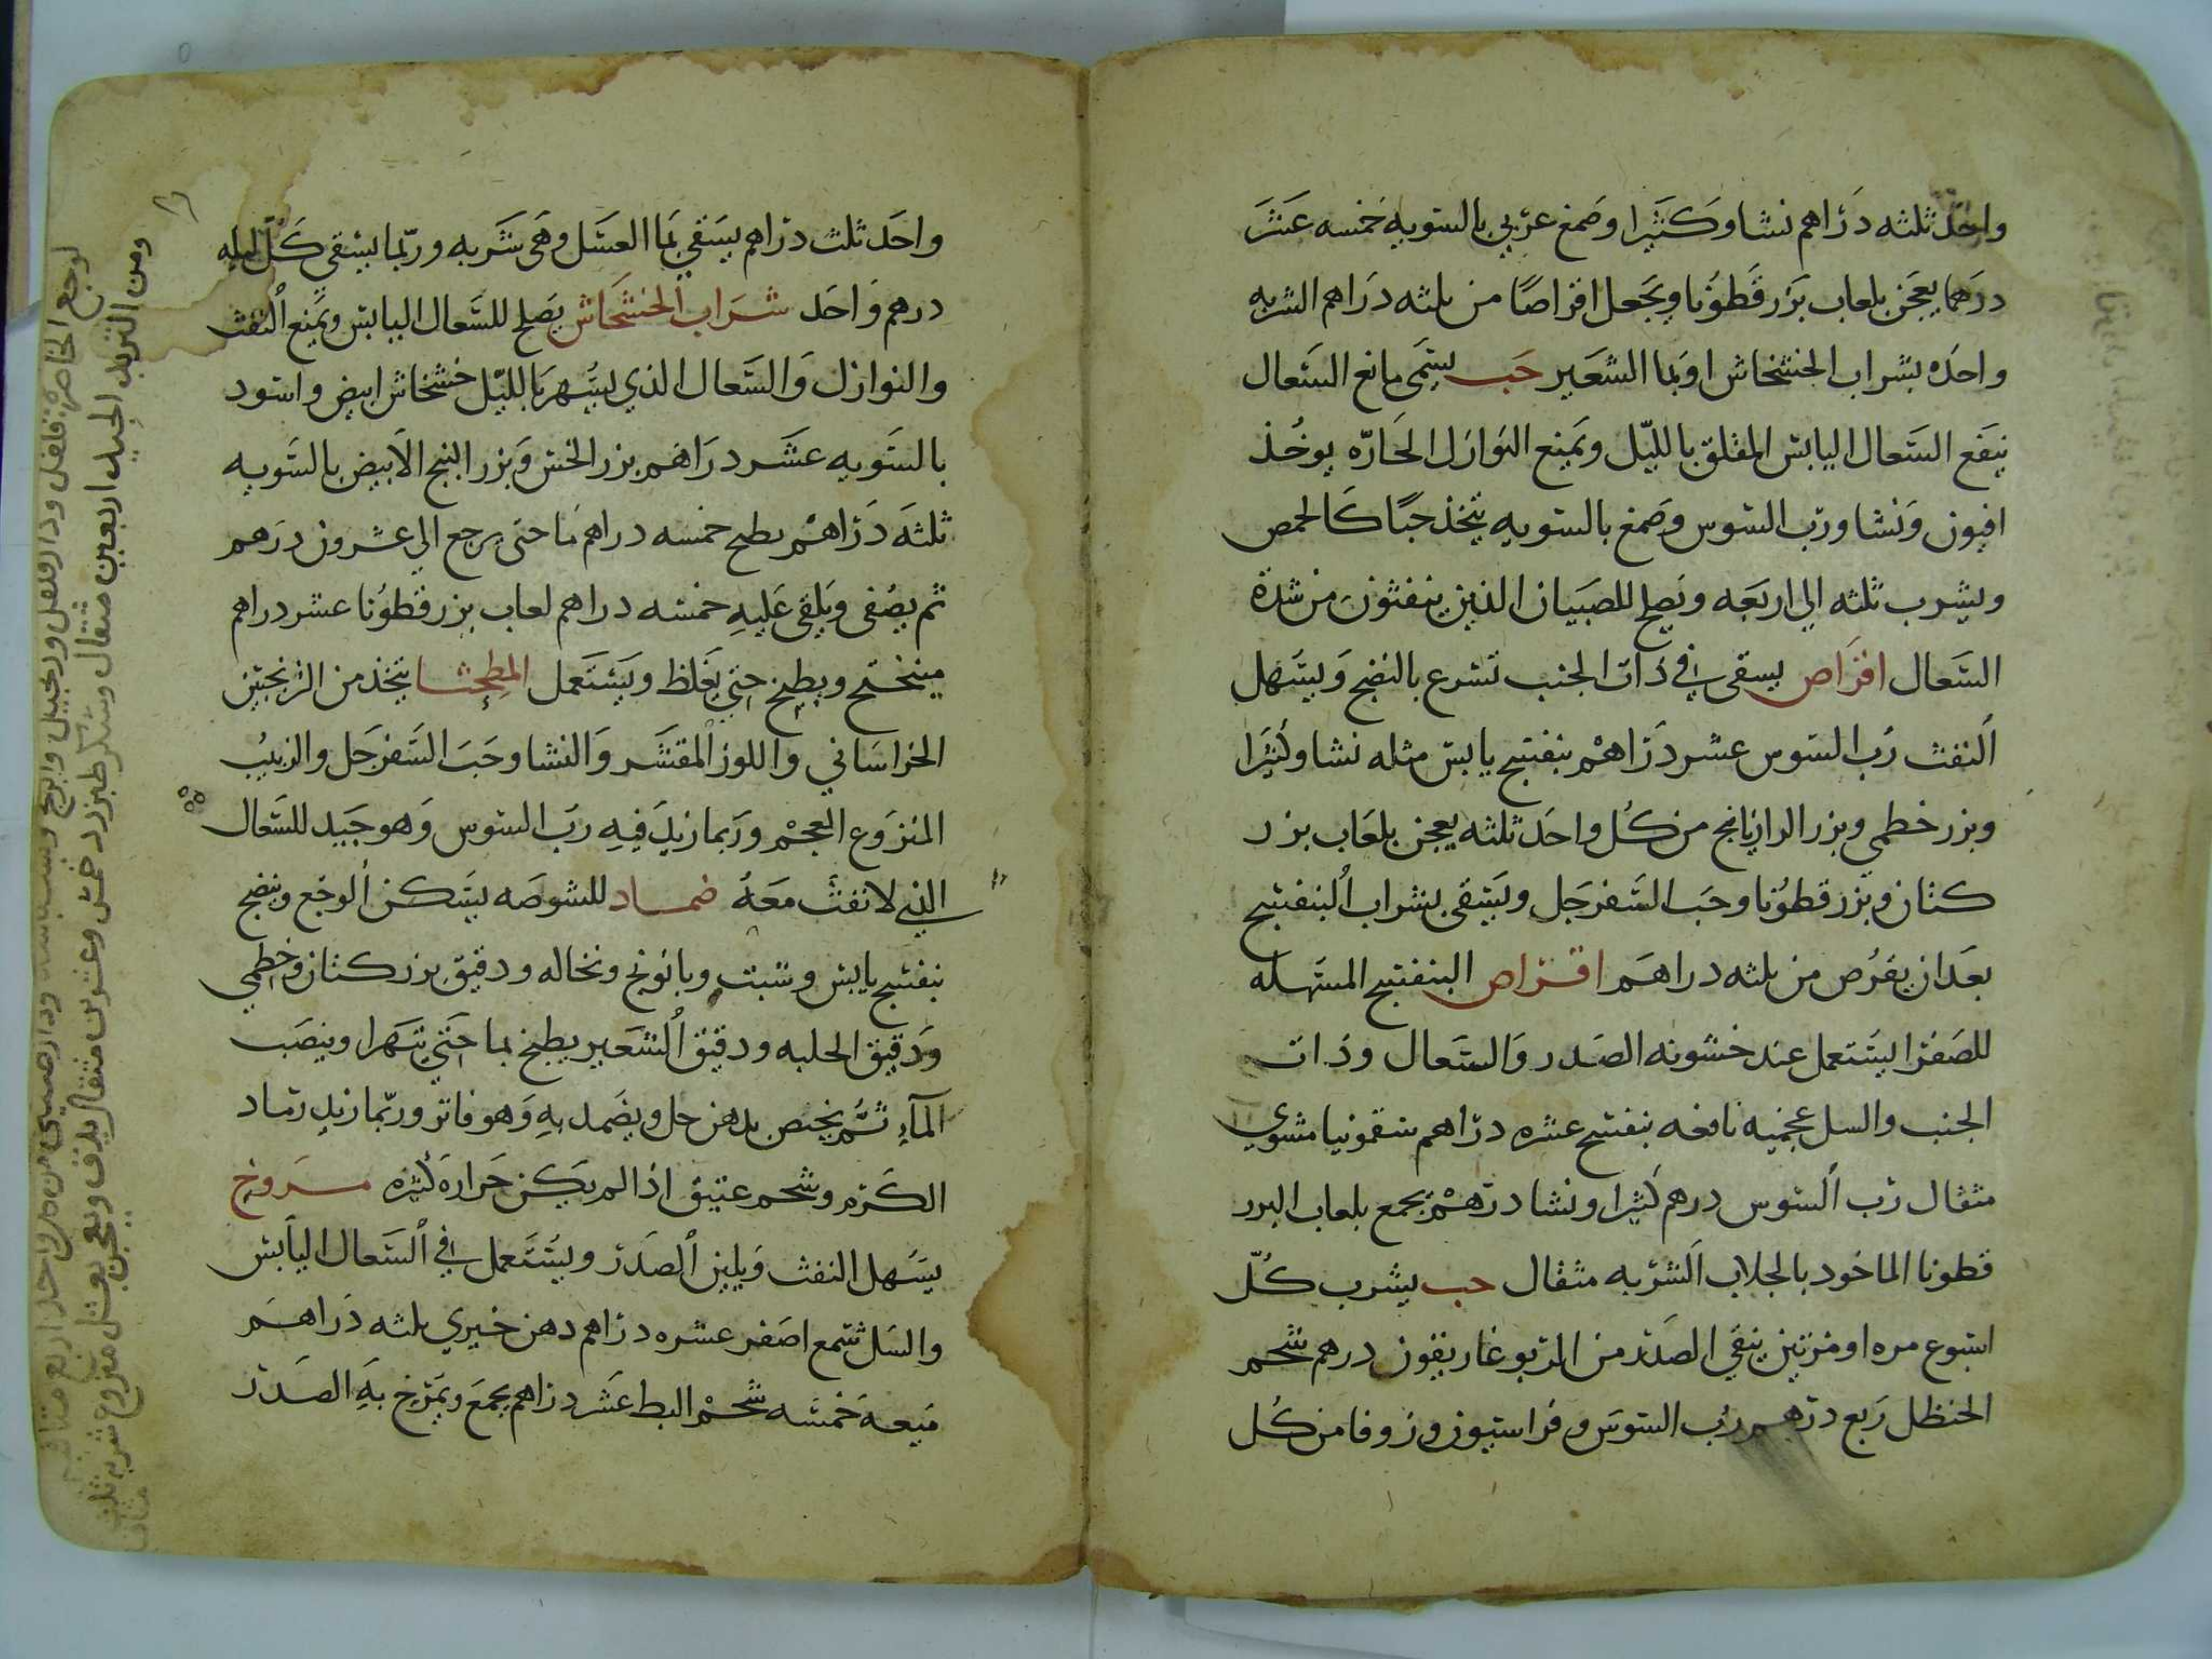 واحد ثلثه دراهم نشا وكثيرا وصمغ عربي بالسويه خمسه عشر
درهما يعجن بلعاب بزر قطونا ويجعل اقراصا من ثلثه دراهم الشربه
واحده بشراب الخشخاش او بما الشعير حب يسمى مانع السعال
ينفع السعال اليابس المقلق بالليل ويمنع النوازل الحارّه يوخذ
افيون ونشا وربّ السوس وصمغ بالسويه يتخذ حبًا كالحمص
ويشرب ثلثه الي اربعه ويصلح للصبيان الذين ينفثون من شدة
السعال اقراص يسقى في ذات الجنب تسرع بالنضج ويسهل
النفث رُب السوس عشر دراهم بنفسج يابس مثله نشا وكثيرا
وبزر خطمي وبزر الرازيانج من كل واحد ثلثه يعجن بلعاب بزر
كتان وبزر قطونا وحب السفرجل ويسقى بشراب البنفسج
بعد ان يقرص من ثلثه دراهم اقراص البنفسج المسهله
للصفرا يستعمل عند خشونه الصدر والسعال وذات
الجنب والسل عجيبه نافعه بنفسج عشره دراهم سقمونيا مشوي
مثقال رب السوس درهم كثيرا ونشا درهم يجمع بلعاب البزر
قطونا الماخوذ بالجلاب الشربه مثقال حب يشرب كلّ
اسبوع مره او مرتين ينقي الصدر من الربو غاريقون درهم شحم
الحنظل ربع درهم رب السوس وفراسيون وزوفا من كل
واحد ثلث دراهم يسقي بما العسل وهي شربه وربّما يسقي كل ليله
درهم واحد شراب الخشخاش يصلح للسعال اليابس ويمنع النفث
والنوازل والسعال الذي يسهر بالليل خشخاش ابيض واسود
بالسويه عشر دراهم بزر الخس وبزر البنج الابيض بالسويه
ثلثه دراهم يطبخ خمسه دراهم ما حتى يرجع الي عشرون درهم
ثم يصفى ويلقى عليه خمسه دراهم لعاب بزر قطونا عشر دراهم
ميبختج ويطبخ حتي يغلظ ويستعمل المطحشا يتخذ من الترنجبين
الخراساني واللوز المقشر والنشا وحب السفرجل والزبيب
المنزوع العجم وربما زيد فيه رب السوس وهو جيد للسعال
الذي لا نفث معه ضماد للشوصه يسكن الوجع وينضج
بنفسج يابس وشبت وبابونج ونخاله ودقيق بزر كتان وخطمي
ودقيق الحلبه ودقيق الشعير يطبخ بما حتى يتهرا وينصب
المآء ثم يخبص بدهن حل ويضمد به وهو فاتر وربّما زيد رماد
الكرم وشحم عتيق اذا لم يكن حراره كثيره مروخ
يسهل النفث ويلين الصدر ويستعمل في السعال اليابس
والسل شمع اصفر عشره دراهم دهن خيري ثلثه دراهم
ميعه خمسه شحم البط عشر دراهم يجمع ويمرخ به الصدر
لوجع الخاصره فلفل ودارفلفل وزنجبيل
ومن التربد الجيد اربعين مثقال وسكر طبرزد خمس وعشرين مثقال يدق ويعجن بعسل منزوع